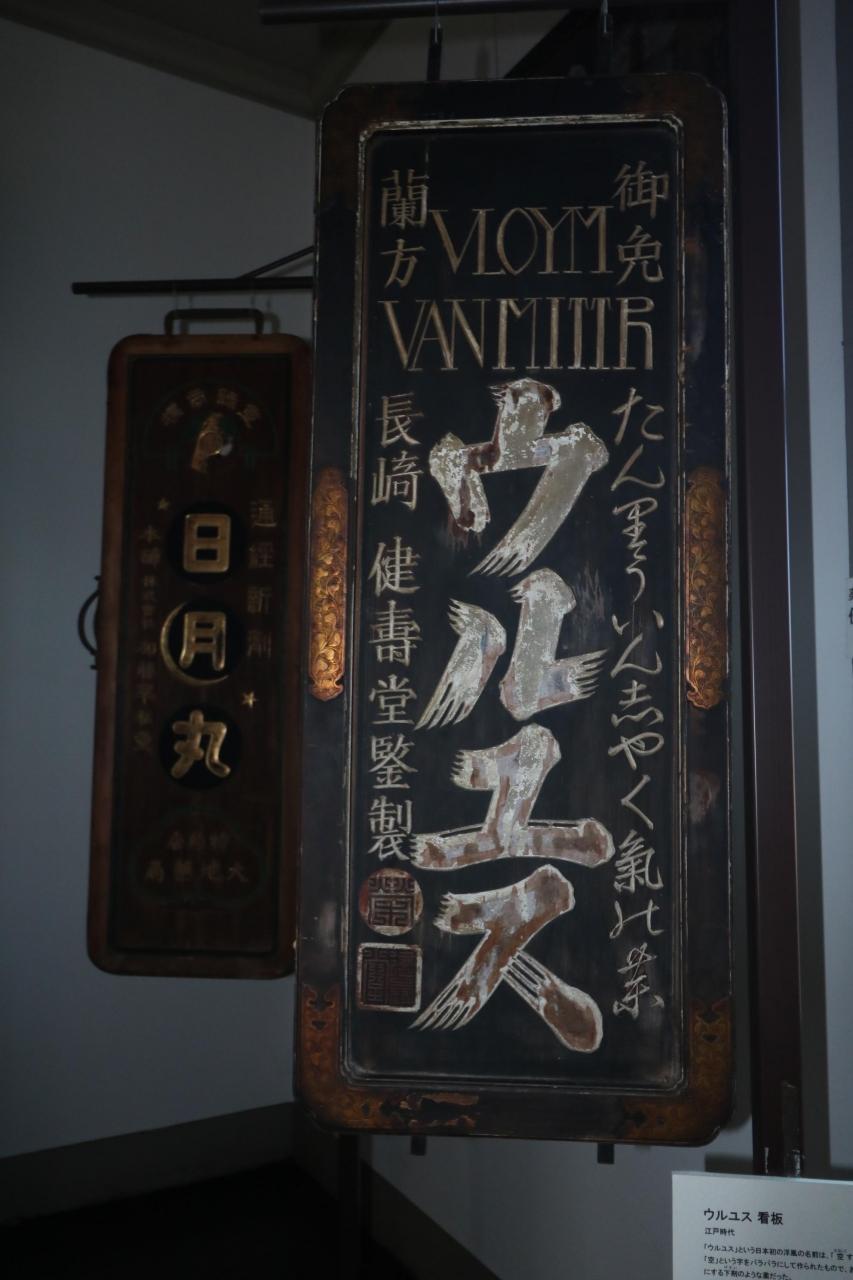 御免
蘭方
VLOYM
VANMITTR
ウルユス
たん里ういん志やく氣の薬
長崎 健壽堂監製
日月丸
通經新劑
本舗
ウルユス 看板
江戸時代
「ウルユス」という日本初の洋風の名前は、「空す
「空」という字をバラバラにして作られたもので、お
にする下剤のような薬だった。